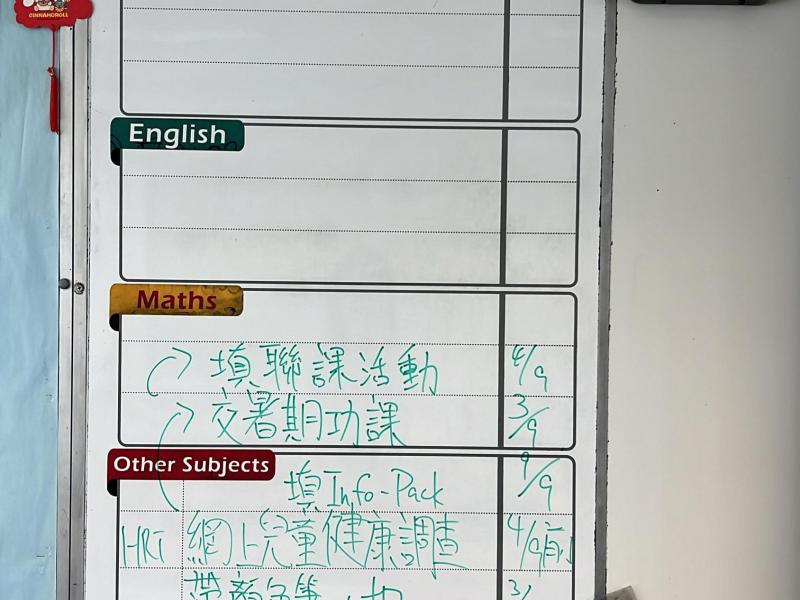 CINNAMOROLL
English
Maths
填聯課活動 4/9
交暑期功課 3/9
Other Subjects
填Info-Pack 9/9
HRT 網上兒童健康調查 4/9前
帶顏色筆 3/